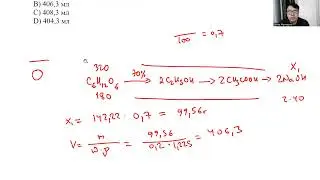 B) 406,3 мл
C) 408,3 мл
D) 404,3 мл
100 = 0,7
O
320
C₆H₁₂O₆ 70% → 2C₂H₅OH → 2CH₃COOH → 2NaOH
180 2·40
X₁
X₁ = 142,22 · 0,7 = 99,56г
V = m / ω·ρ = 99,56 / 0,2·1,225 = 406,3